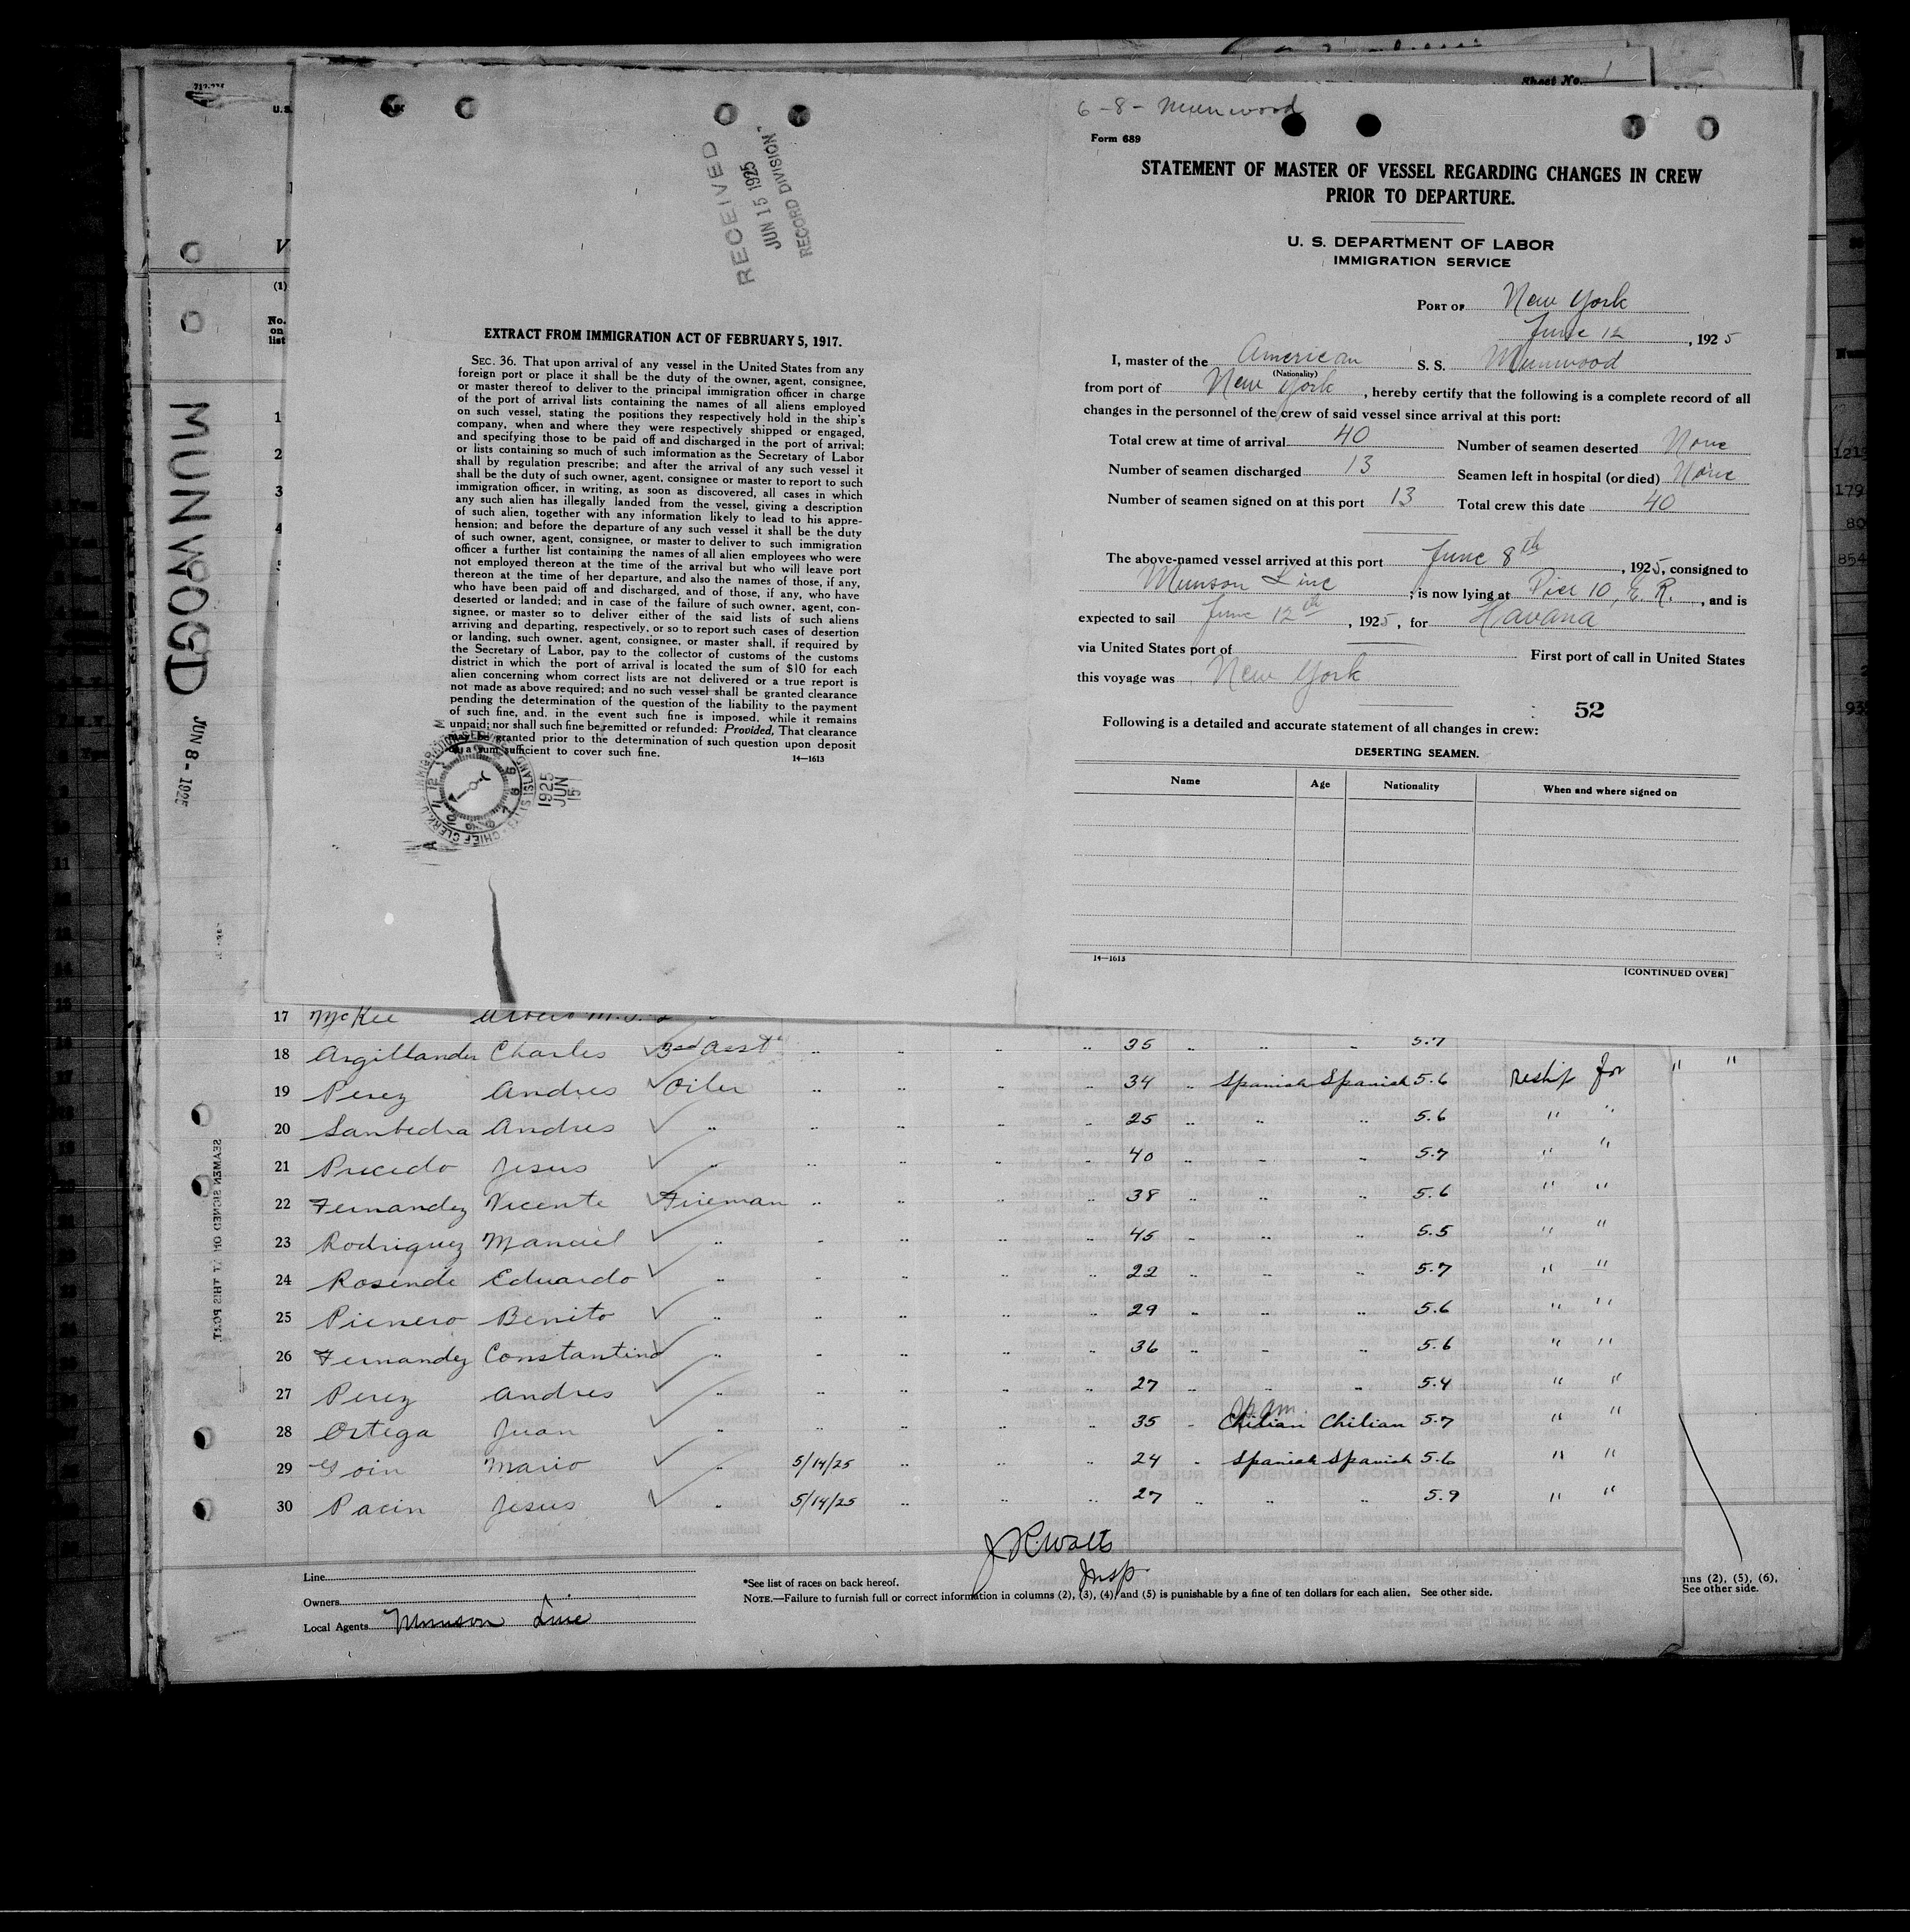 Sheet No. 1
MUNWOOD
JUN 8 - 1925
V
(1)
No.
on
list
1
2
3
4
RECEIVED
JUN 15 1925
RECORD DIVISION
EXTRACT FROM IMMIGRATION ACT OF FEBRUARY 5, 1917.
SEC. 36. That upon arrival of any vessel in the United States from any
foreign port or place it shall be the duty of the owner, agent, consignee,
or master thereof to deliver to the principal immigration officer in charge
of the port of arrival lists containing the names of all aliens employed
on such vessel, stating the positions they respectively hold in the ship's
company, when and where they were respectively shipped or engaged,
and specifying those to be paid off and discharged in the port of arrival;
or lists containing so much of such imformation as the Secretary of Labor
shall by regulation prescribe; and after the arrival of any such vessel it
shall be the duty of such owner, agent, consignee or master to report to such
immigration officer, in writing, as soon as discovered, all cases in which
any such alien has illegally landed from the vessel, giving a description
of such alien, together with any information likely to lead to his appre-
hension; and before the departure of any such vessel it shall be the duty
of such owner, agent, consignee, or master to deliver to such immigration
officer a further list containing the names of all alien employees who were
not employed thereon at the time of the arrival but who will leave port
thereon at the time of her departure, and also the names of those, if any,
who have been paid off and discharged, and of those, if any, who have
deserted or landed; and in case of the failure of such owner, agent, con-
signee, or master so to deliver either of the said lists of such aliens
arriving and departing, respectively, or so to report such cases of desertion
or landing, such owner, agent, consignee, or master shall, if required by
the Secretary of Labor, pay to the collector of customs of the customs
district in which the port of arrival is located the sum of $10 for each
alien concerning whom correct lists are not delivered or a true report is
not made as above required; and no such vessel shall be granted clearance
pending the determination of the question of the liability to the payment
of such fine, and, in the event such fine is imposed, while it remains
unpaid; nor shall such fine be remitted or refunded: Provided, That clearance
may be granted prior to the determination of such question upon deposit
of a sum sufficient to cover such fine.
14—1613
1925
JUN
15
6 - 8 - Munwood
Form 689
STATEMENT OF MASTER OF VESSEL REGARDING CHANGES IN CREW
PRIOR TO DEPARTURE.
U. S. DEPARTMENT OF LABOR
IMMIGRATION SERVICE
PORT OF New York
June 12, 1925
I, master of the American S. S. Munwood
(Nationality)
from port of New York, hereby certify that the following is a complete record of all
changes in the personnel of the crew of said vessel since arrival at this port:
Total crew at time of arrival 40 Number of seamen deserted None
Number of seamen discharged 13 Seamen left in hospital (or died) None
Number of seamen signed on at this port 13 Total crew this date 40
The above-named vessel arrived at this port June 8th, 1925, consigned to
Munson Line; is now lying at Pier 10, E. R., and is
expected to sail June 12th, 1925, for Havana
via United States port of First port of call in United States
this voyage was New York
52
Following is a detailed and accurate statement of all changes in crew:
DESERTING SEAMEN.
Name Age Nationality When and where signed on
14—1613
[CONTINUED OVER]
17 McKee
18 Argillander Charles 3rd Asst " " " " 35 " " " 5.7 " "
19 Perez Andres Oiler " " " " 34 " Spanish Spanish 5.6 Reship for
20 Santedra Andres " " " " " 25 " " " 5.6 " "
21 Precedo Jesus " " " " " 40 " " " 5.7 " "
22 Fernandez Vicente Fireman " " " " 38 " " " 5.6 " "
23 Rodriguez Manuel " " " " " 45 " " " 5.5 " "
24 Rosende Eduardo " " " " " 22 " " " 5.7 " "
25 Pienero Benito " " " " " 29 " " " 5.6 " "
26 Fernandez Constantino " " " " " 36 " " " 5.6 " "
27 Perez Andres " " " " " 27 " " " 5.4 " "
28 Ortega Juan " " " " " 35 " Chilian Chilian 5.7 " "
29 Goin Mario " 5/14/25 " " " 24 " Spanish Spanish 5.6 " "
30 Pacin Jesus " 5/14/25 " " " 27 " " " 5.9 " "
J R Watts
Insp
Line
Owners
Local Agents Munson Line
*See list of races on back hereof.
NOTE.—Failure to furnish full or correct information in columns (2), (3), (4) and (5) is punishable by a fine of ten dollars for each alien. See other side.
ns (2), (5), (6).
See other side.